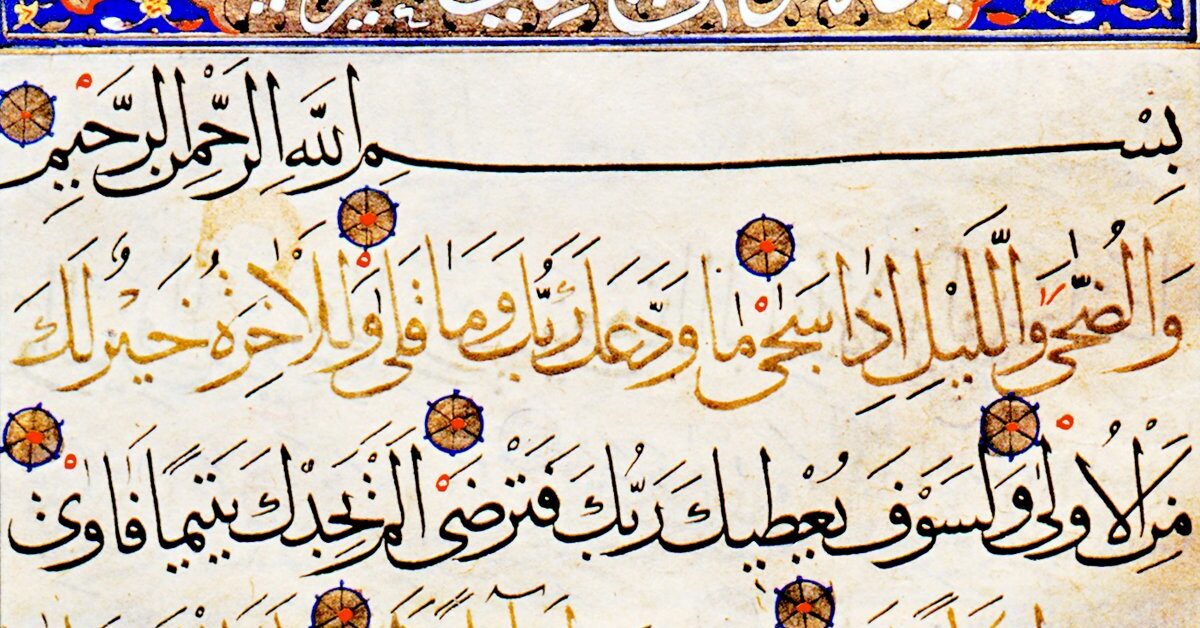 بِسْمِ اللهِ الرَّحْمٰنِ الرَّحِيْمِ
وَالضُّحٰى وَاللَّيْلِ اِذَا سَجٰى مَا وَدَّعَكَ رَبُّكَ وَمَا قَلٰى وَلَلْاٰخِرَةُ خَيْرٌ لَكَ
مِنَ الْاُوْلٰى وَلَسَوْفَ يُعْطِيْكَ رَبُّكَ فَتَرْضٰى اَلَمْ يَجِدْكَ يَتِيْمًا فَاٰوٰى